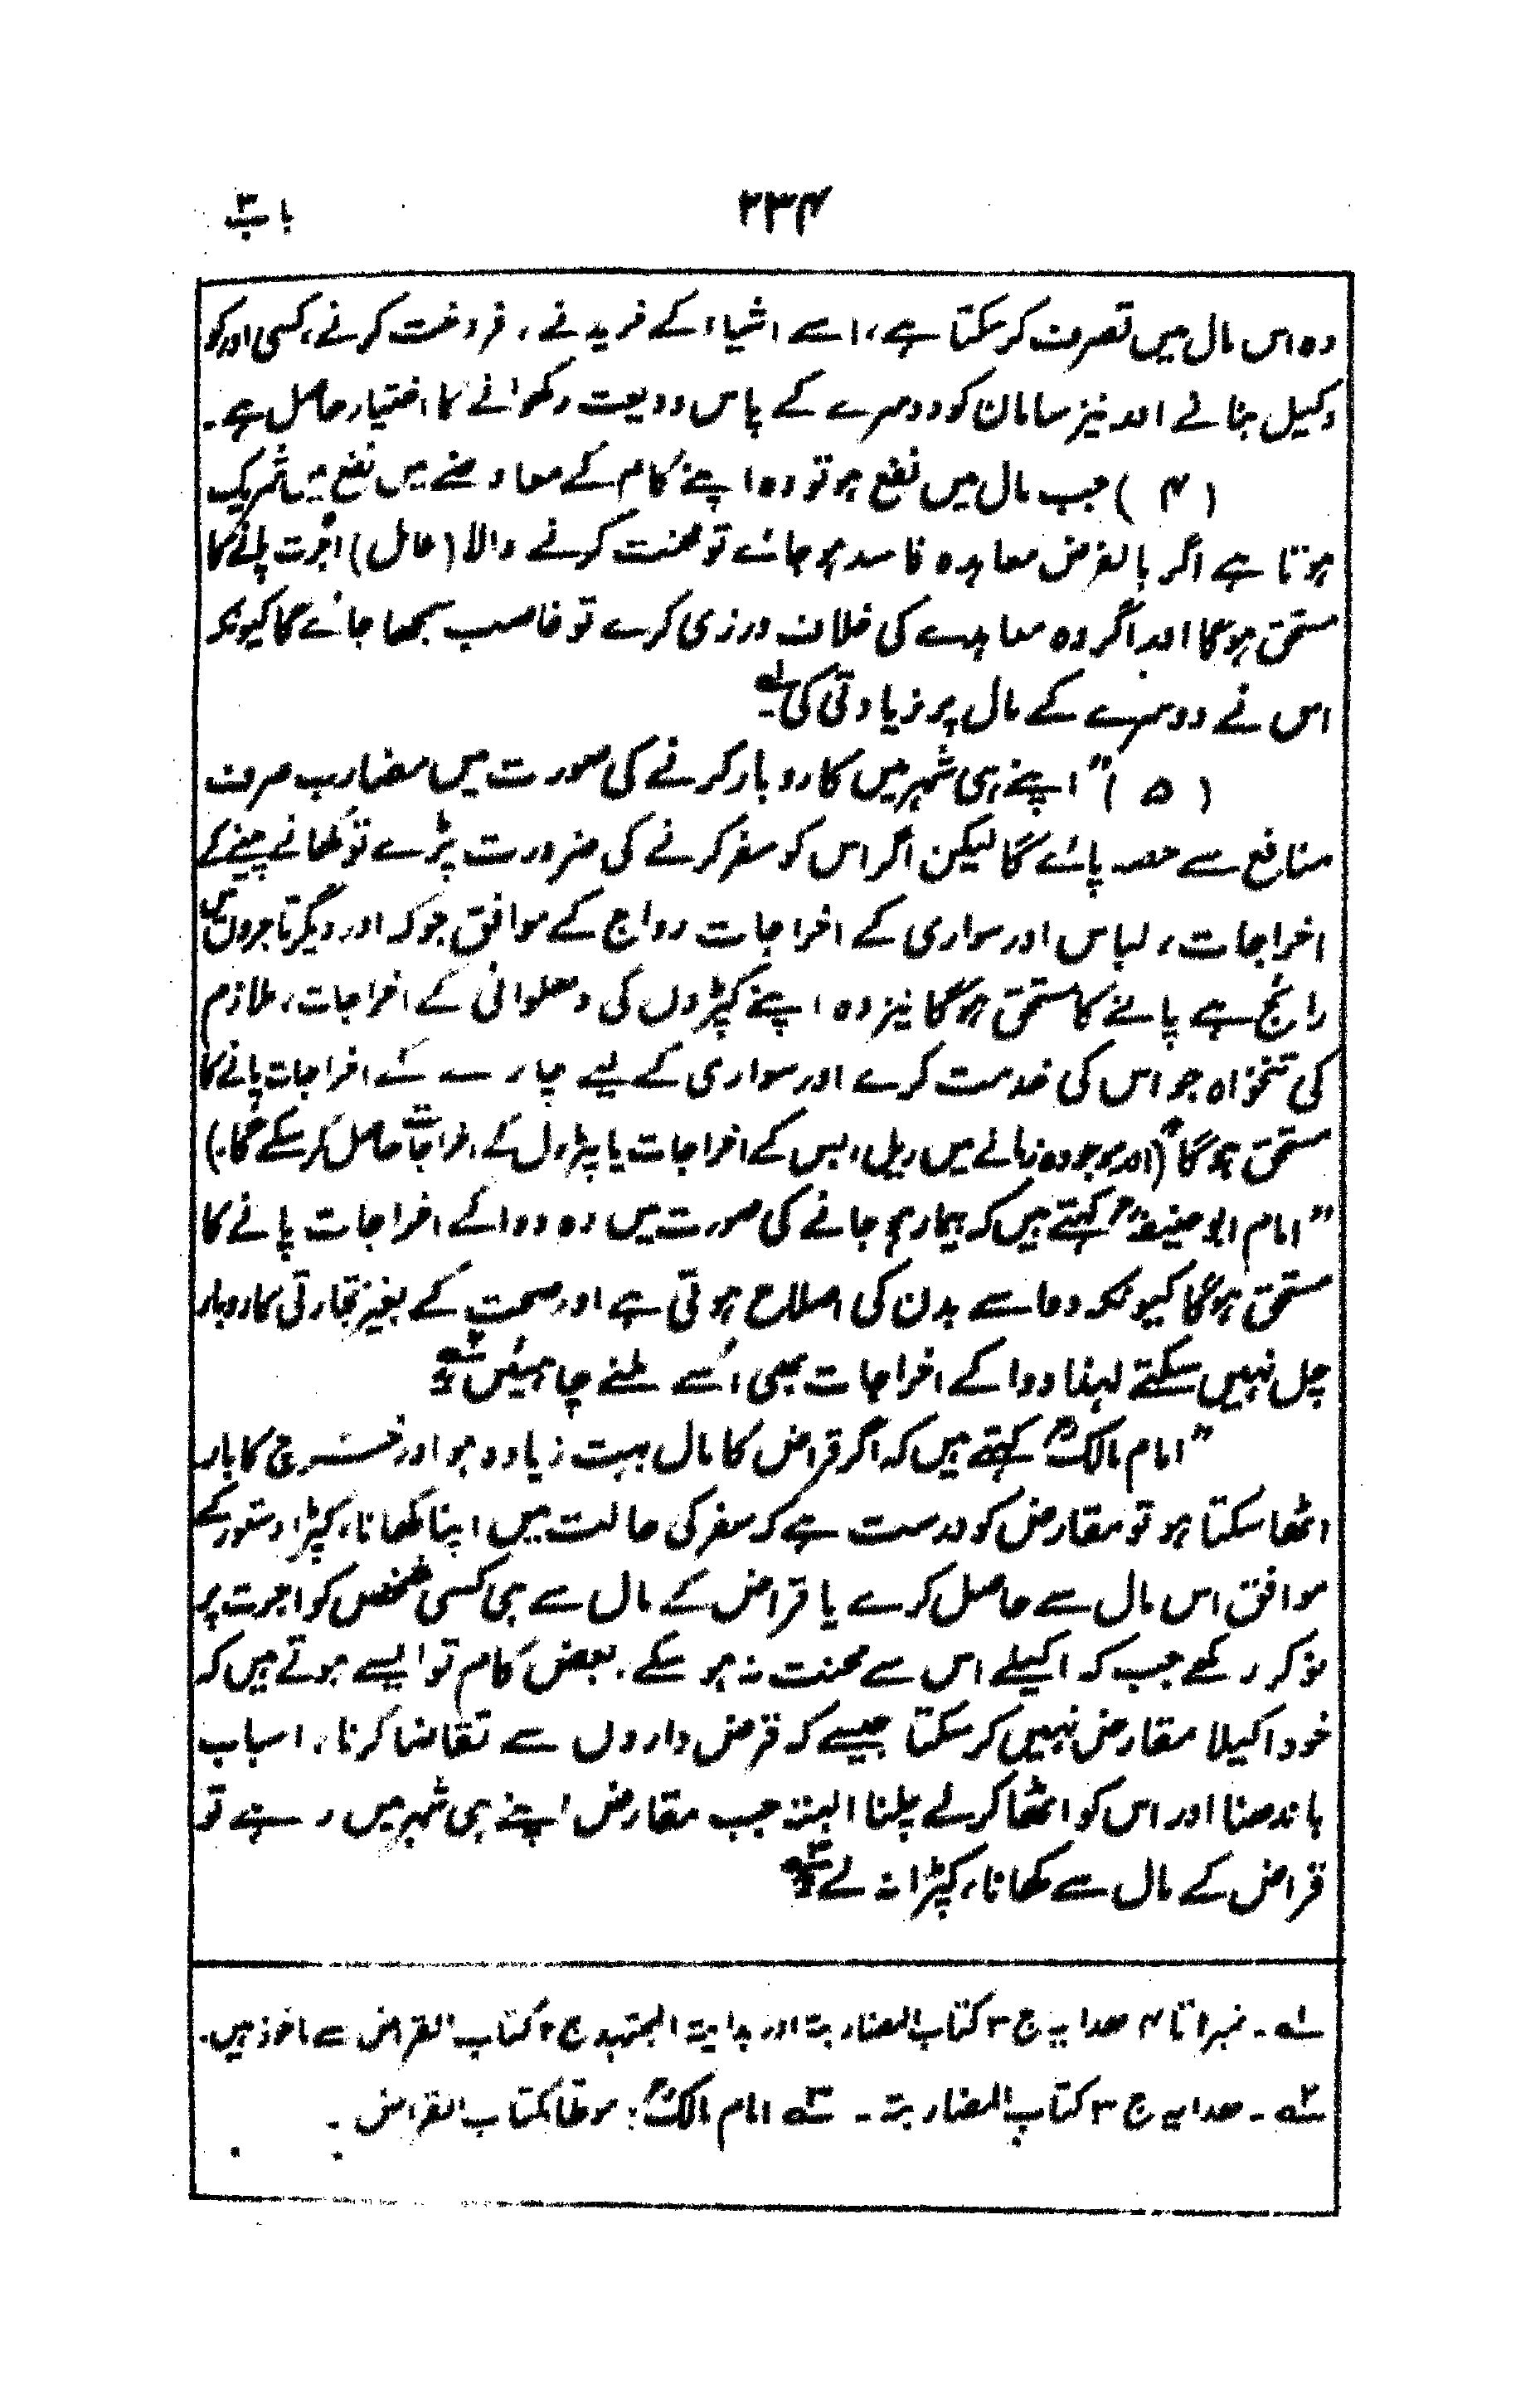 ۲۳۴
باب ۳
وہ اس مال میں تصرف کر سکتا ہے، اسے اشیاء کے خریدنے، فروخت کرنے، کسی اور کو
وکیل بنانے اور نیز سامان کو دوسرے کے پاس ودیعت رکھوانے کا اختیار حاصل ہے۔
(۴) جب مال میں نفع ہو تو وہ اپنے کام کے معاوضے میں نفع میں شریک
ہوتا ہے اگر بالفرض معاہدہ فاسد ہو جائے تو محنت کرنے والا (عامل) اجرت پانے کا
مستحق ہوگا اور اگر وہ معاہدے کی خلاف ورزی کرے تو غاصب سمجھا جائے گا کیونکہ
اس نے دوسرے کے مال پر زیادتی کی۔ لہ
(۵) "اپنے ہی شہر میں کاروبار کرنے کی صورت میں مضارب صرف
منافع سے حصہ پائے گا لیکن اگر اس کو سفر کرنے کی ضرورت پڑے تو کھانے پینے کے
اخراجات، لباس اور سواری کے اخراجات رواج کے موافق جو کہ اور دیگر تاجروں میں
رائج ہے پانے کا مستحق ہوگا نیز وہ اپنے کپڑوں کی دھلوائی کے اخراجات، ملازم
کی تنخواہ جو اس کی خدمت کرے اور سواری کے لیے چارے کے اخراجات پانے کا
مستحق ہوگا" (اور موجودہ زمانے میں ریل، بس کے اخراجات یا پٹرول کے اخراجات حاصل کر سکے گا۔)
"امام ابو حنیفہؒ کہتے ہیں کہ بیمار ہو جانے کی صورت میں وہ دوا کے اخراجات پانے کا
مستحق ہوگا کیونکہ دوا سے بدن کی اصلاح ہوتی ہے اور صحت کے بغیر تجارتی کاروبار
چل نہیں سکتے لہٰذا دوا کے اخراجات بھی اسے ملنے چاہئیں۔" ۲ہ
"امام مالکؒ کہتے ہیں کہ اگر قراض کا مال بہت زیادہ ہو اور خرچ کا بار
اٹھا سکتا ہو تو مقارض کو درست ہے کہ سفر کی حالت میں اپنا کھانا، کپڑا دستور کے
موافق اس مال سے حاصل کرے یا قراض کے مال سے ہی کسی شخص کو اجرت پر
نوکر رکھے جب کہ اکیلے اس سے محنت نہ ہو سکے۔ بعض کام تو ایسے ہوتے ہیں کہ
خود اکیلا مقارض نہیں کر سکتا جیسے کہ قرض داروں سے تقاضا کرنا، اسباب
باندھنا اور اس کو اٹھا کر لے چلنا البتہ جب مقارض اپنے ہی شہر میں رہے تو
قراض کے مال سے کھانا، کپڑا نہ لے۔" ۳ہ
لہ۔ نمبر ۱ تا ۴ ھدایہ ج ۳ کتاب المضاربۃ اور بدایۃ المجتہد ج ۲ کتاب القراض سے ماخوذ ہیں۔
۲ہ۔ ھدایہ ج ۳ کتاب المضاربۃ۔ ۳ہ امام مالکؒ: موطّا کتاب القراض۔